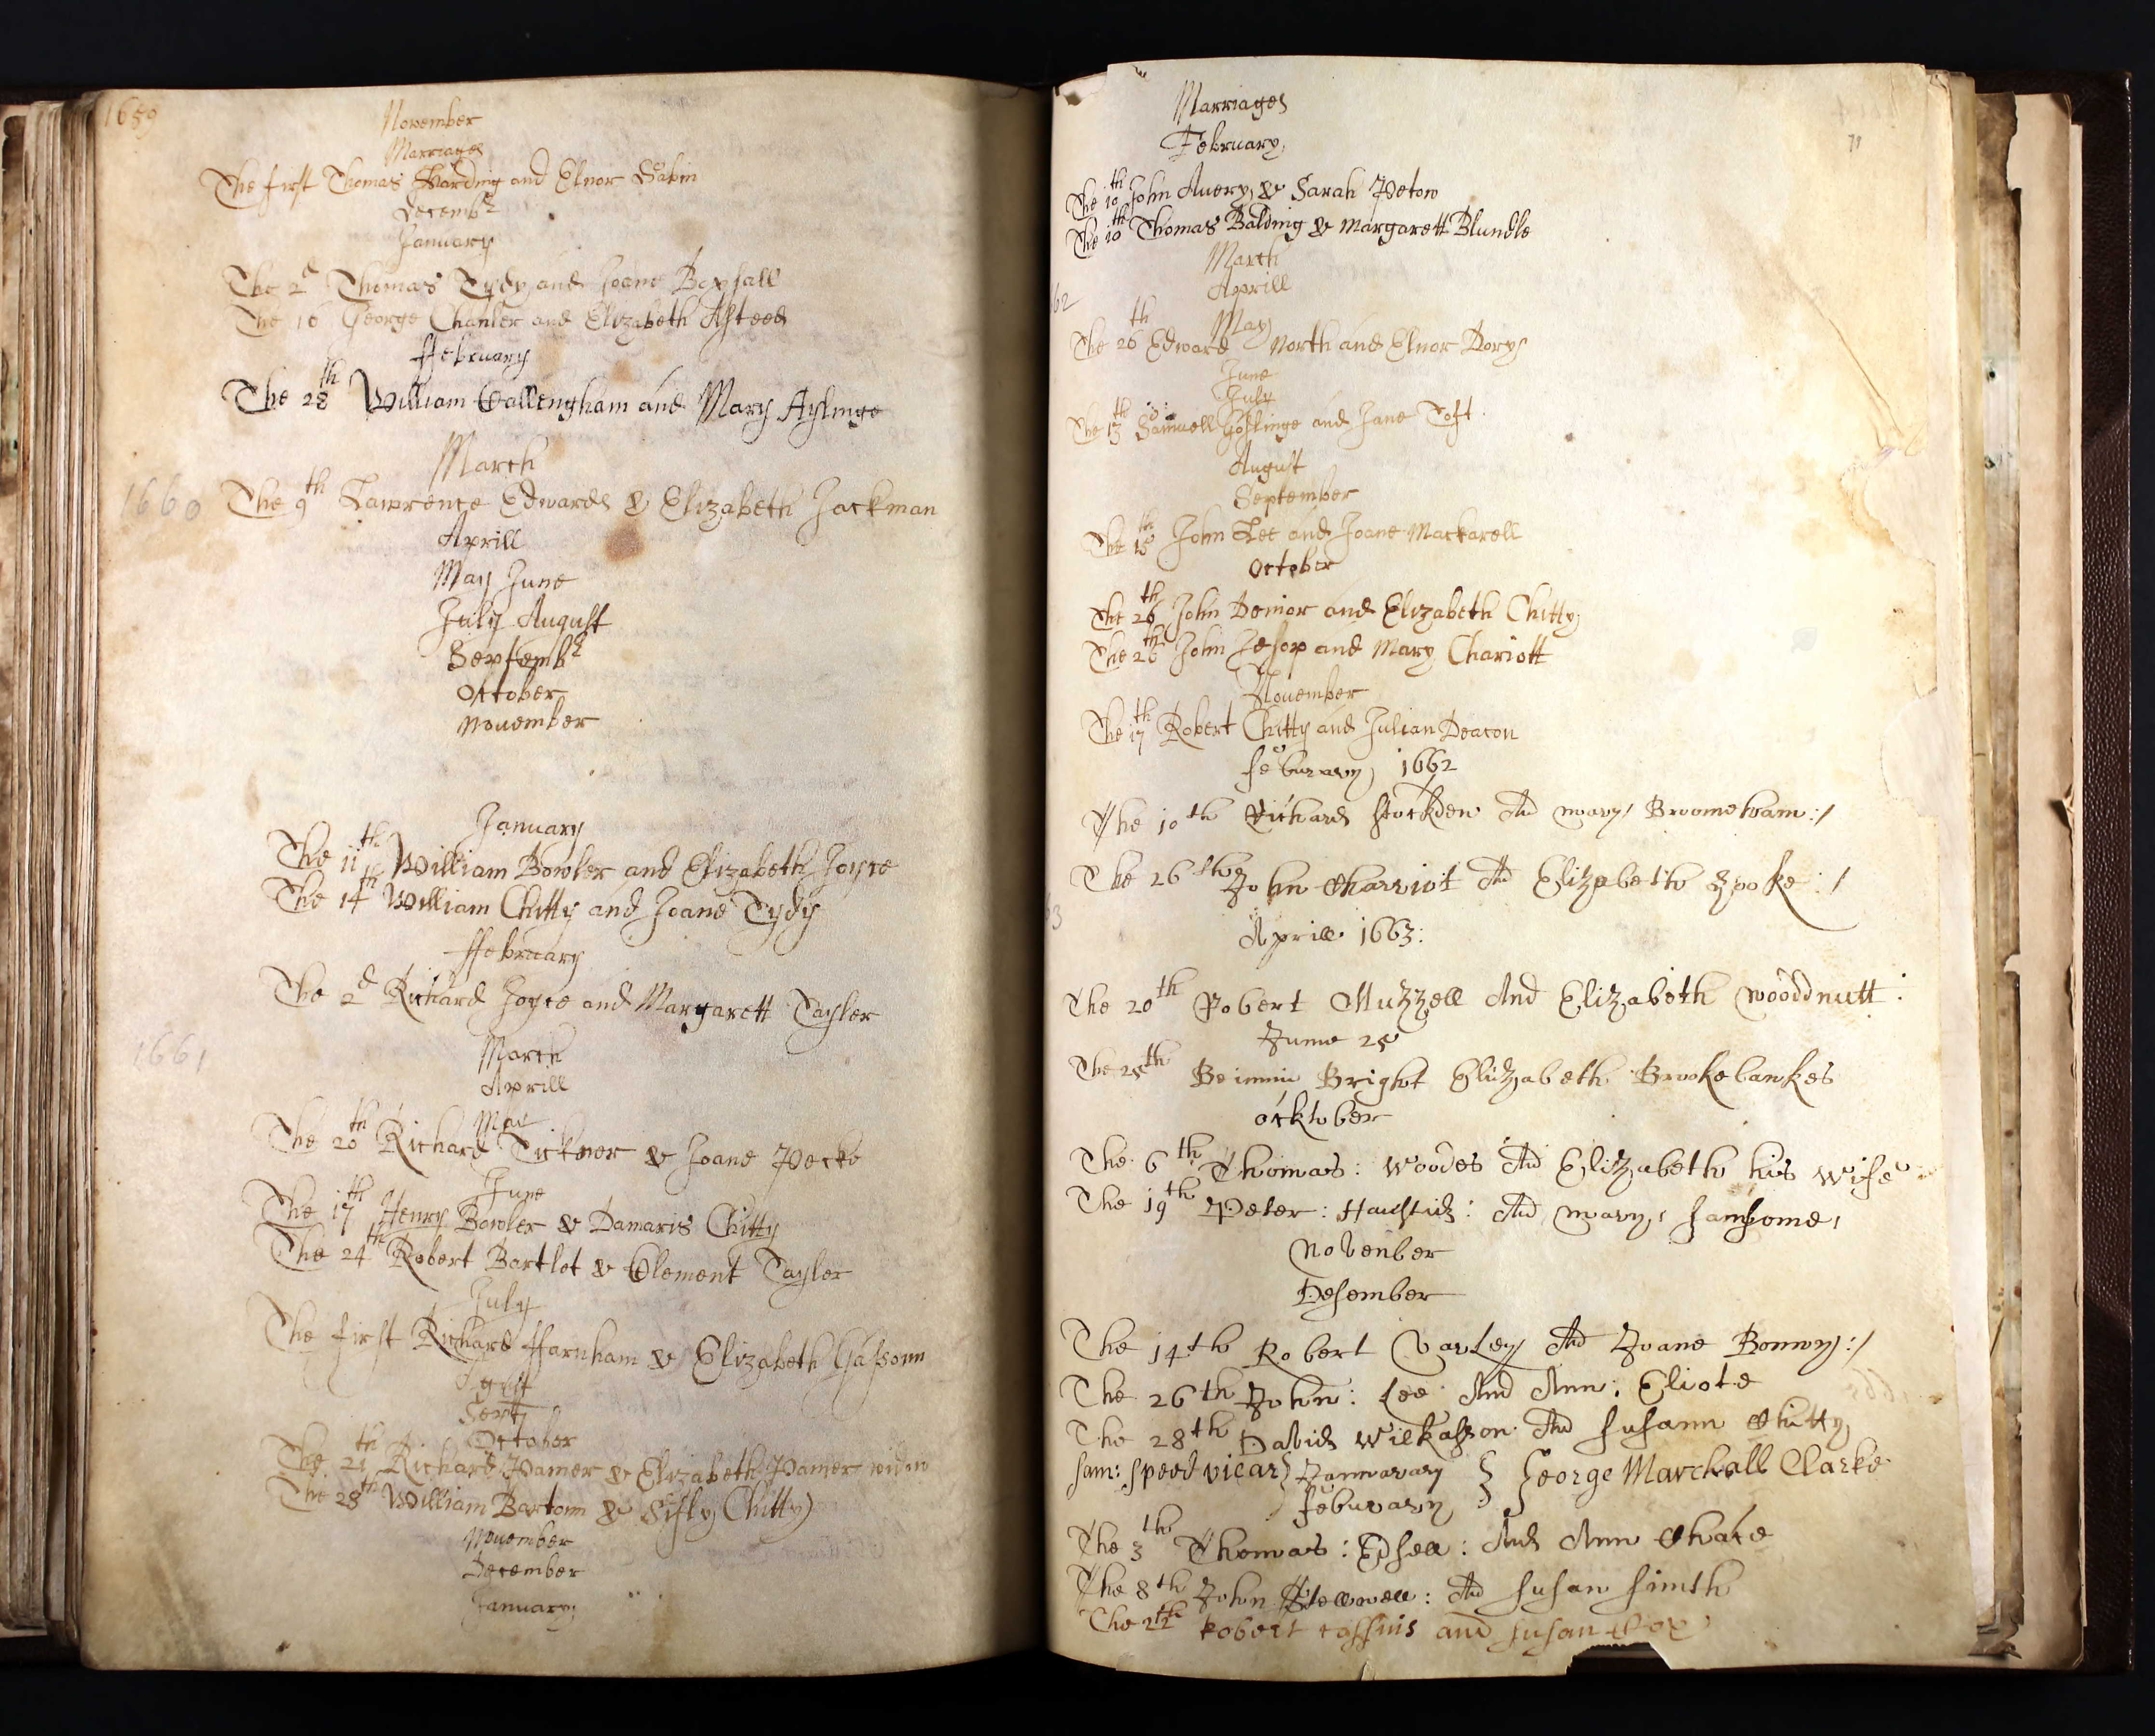 1659
November
Marriages
The first Thomas Harding and Elnor Dabin
Decembr
January
The 2d Thomas Tydy and Joane Boxfall
The 16 George Chanler and Elizabeth Asteed
ffebruary
The 28th William Callengham and Mary Aylinge
March
1660 The 9th Lawrence Edwards & Elizabeth Jackman
Aprill
May June
July August
Septembr
October
November
January
The 11th William Bowler and Elizabeth Joyce
The 14th William Chitty and Joane Tydy
ffebruary
The 2d Richard Joyce and Margarett Tayler
1661
March
Aprill
May
The 20th Richard Tickner & Joane Pecke
June
The 17th Henry Bowler & Damaris Chitty
The 24th Robert Bartlet & Clement Tayler
July
The first Richard ffarnham & Elizabeth Gassonn
Sept
October
The 21th Richard Pamer & Elizabeth Pamer widw
The 28th William Bartonn & Sisly Chitty
November
December
January
71
Marriages
February
The 10th John Auery & Sarah Peton
The 10th Thomas Balding & Margarett Blundle
March
Aprill
62
May
The 26th Edward North and Elnor Dory
June
July
The 13th Samuell Goslinge and Jane Toft
August
September
The 15th John Lee and Joane Mackarell
October
The 26th John Demor and Elizabeth Chitty
The 26th John Jesop and Mary Chariott
November
The 17th Robert Chitty and Julian Deacon
feburary 1662
The 10th Richard Stockden And mary Broomeham :/
The 26th John Charriot And Elizabeth Spoke :/
63
Aprill 1663:
The 20th Robert Muzzell And Elizabeth wooddnutt :
June 25
The 25th Beimin Bright Elizabeth Brookebankes
ocktober
The 6th Thomas: Woodes And Elizabeth his wife
The 19th Peter: And mary, Samsome,
Novenber
Desember
The 14th Robert Varley And Joane Bonwy :/
The 26th John: Lee And Ann: Eliote
The 28th David Wilkasson And Susann Chitty
Sam: Speed vicar Jannarary George Marchall Clarke
feburary
The 3th Thomas: Edsell: And Ann Chace
The 8th John Stellwell: And Susan Simth
The 22th Robert and Susan Cox